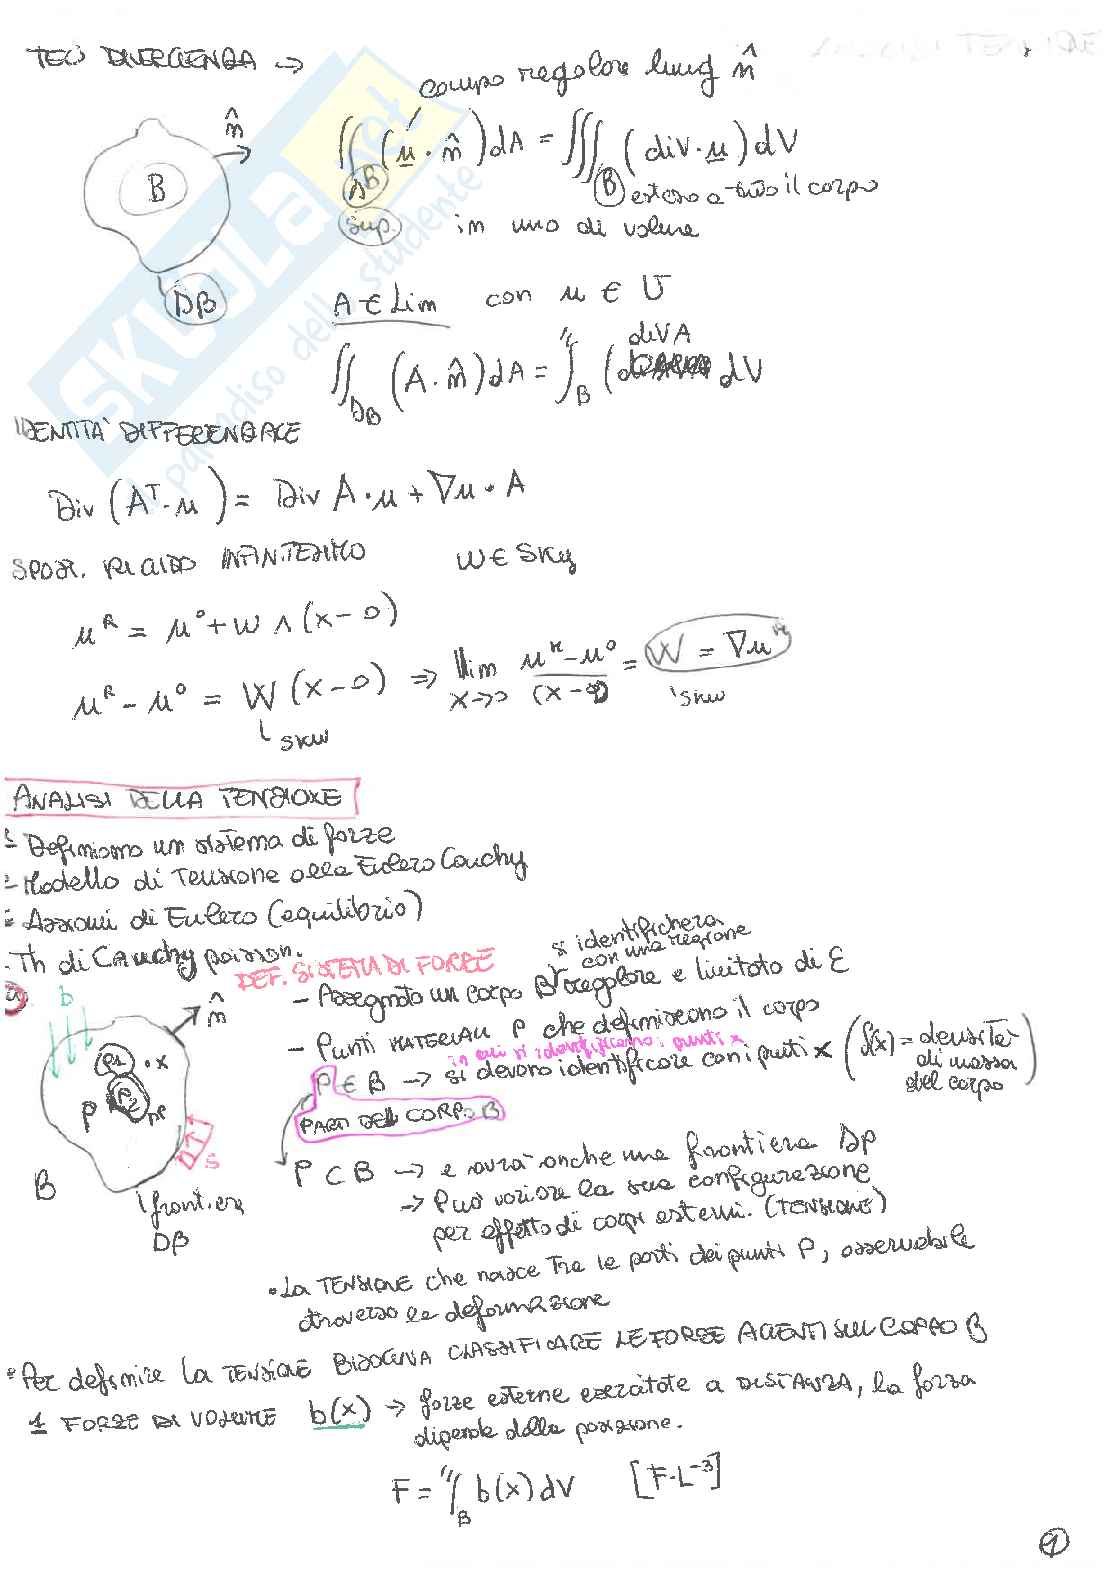 TEO DIVERGENZA →
campo regolare lung n̂
n̂
∬ (u · n̂) dA = ∭ (div · u) dV
B
∂B
B esteso a tutto il corpo
Sup. in uno di volume
∂B
A ∈ Lim con u ∈ U
∬ (A · n̂) dA = ∫ ( div A dV
∂B
B
IDENTITA' DIFFERENZIALE
Div (Aᵀ · u) = Div A · u + ∇u · A
SPOST. RIGIDO INFINTESIMO W ∈ Skw
uᴿ = u° + w ∧ (x - o)
uᴿ - u° = W (x - o) ⇒ lim uᴿ - u° / (x - o) = W = ∇uᴿ
x → o
skw
skw
ANALISI DELLA TENSIONE
- Definiamo un sistema di forze
- Modello di Tensione alla Eulero Cauchy
- Assiomi di Eulero (equilibrio)
. Th di Cauchy poisson.
DEF. SISTEMA DI FORZE
si identificherà
con una regione
b
n̂
- Assegnato un corpo B regolare e limitato di E
- Punti MATERIALI P che definiscono il corpo
in cui si identificano i punti x
P ∈ B → si devono identificare con i punti x (f(x) = densità
di massa
del corpo)
P1 · x
P2
P
∂P
PARTI DEL CORPO B
S
B
frontiera
∂B
P ⊂ B → e avrà anche una frontiera ∂p
→ Può variare la sua configurazione
per effetto di corpi esterni. (TENSIONE)
• La TENSIONE che nasce Tra le parti dei punti P, osservabile
attraverso la deformazione
• Per definire la TENSIONE BISOGNA CLASSIFICARE LE FORZE AGENTI SUL CORPO B
1 FORZE DI VOLUME b(x) → forze esterne esercitate a DISTANZA, la forza
dipende dalla posizione.
F = ∫ b(x) dV [F·L⁻³]
B
1
SKUOLA.net
il paradiso dello studente